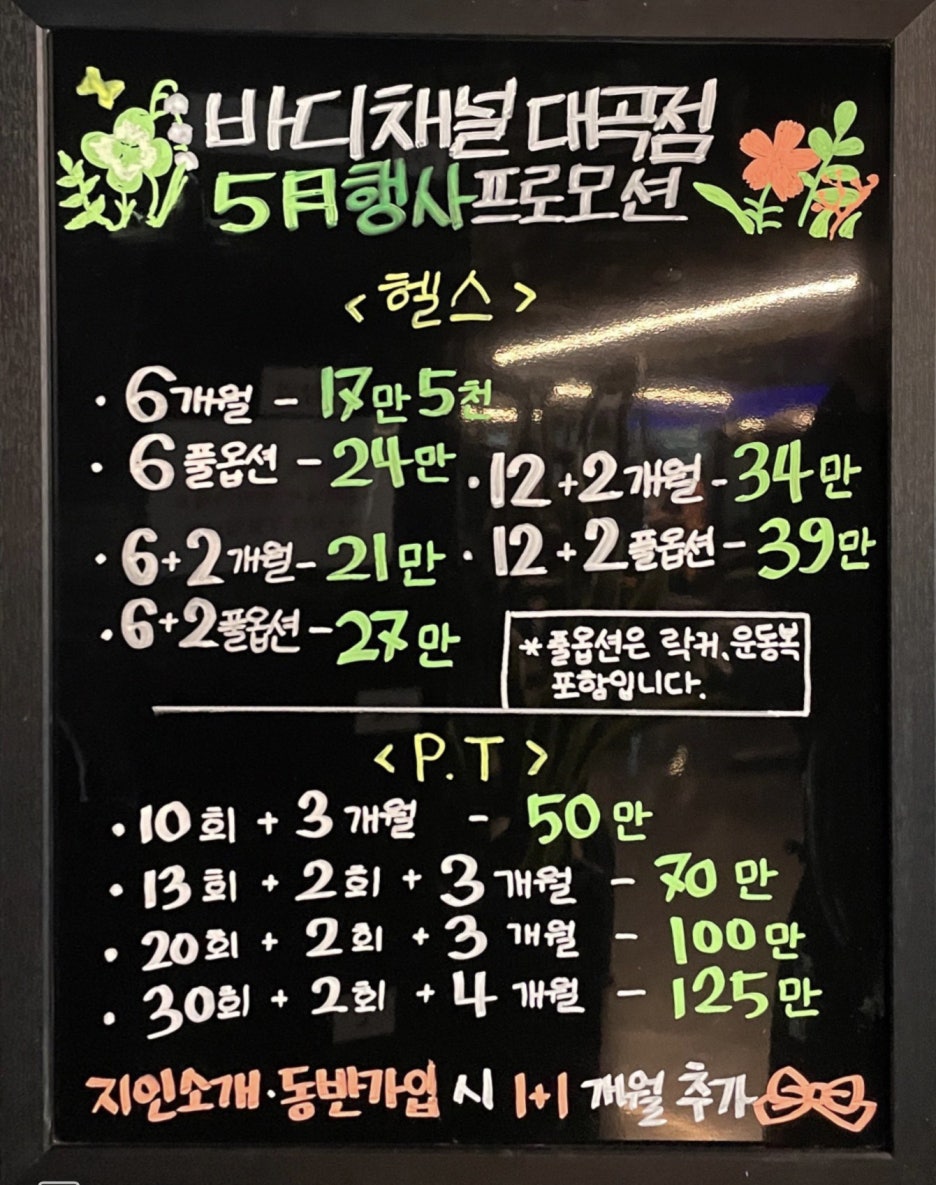 바디채널 대곡점
5月행사프로모션
<헬스>
· 6개월 - 17만5천
· 6풀옵션 - 24만
· 6+2개월 - 21만
· 6+2풀옵션 - 27만
· 12+2개월 - 34만
· 12+2풀옵션 - 39만
*풀옵션은 락커, 운동복
포함입니다.
<P.T>
· 10회 + 3개월 - 50만
· 13회 + 2회 + 3개월 - 70만
· 20회 + 2회 + 3개월 - 100만
· 30회 + 2회 + 4개월 - 125만
지인소개·동반가입 시 1+1 개월 추가